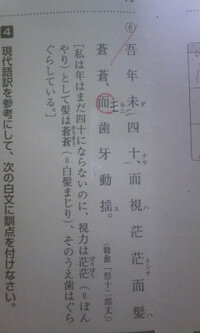 ⑥吾年未ダ四十ナラ、而視ハ茫茫トシテ而髪ハ
蒼蒼、而歯牙動揺ス。
(韓愈「祭十二郎文」)
[私は年はまだ四十にならないのに、視力は茫茫(=ぼん
やり)として髪は蒼蒼(=白髪まじり)、そのうえ歯はぐ
らぐらしている。]
4 現代語訳を参考にして、次の白文に訓点を付けなさい。